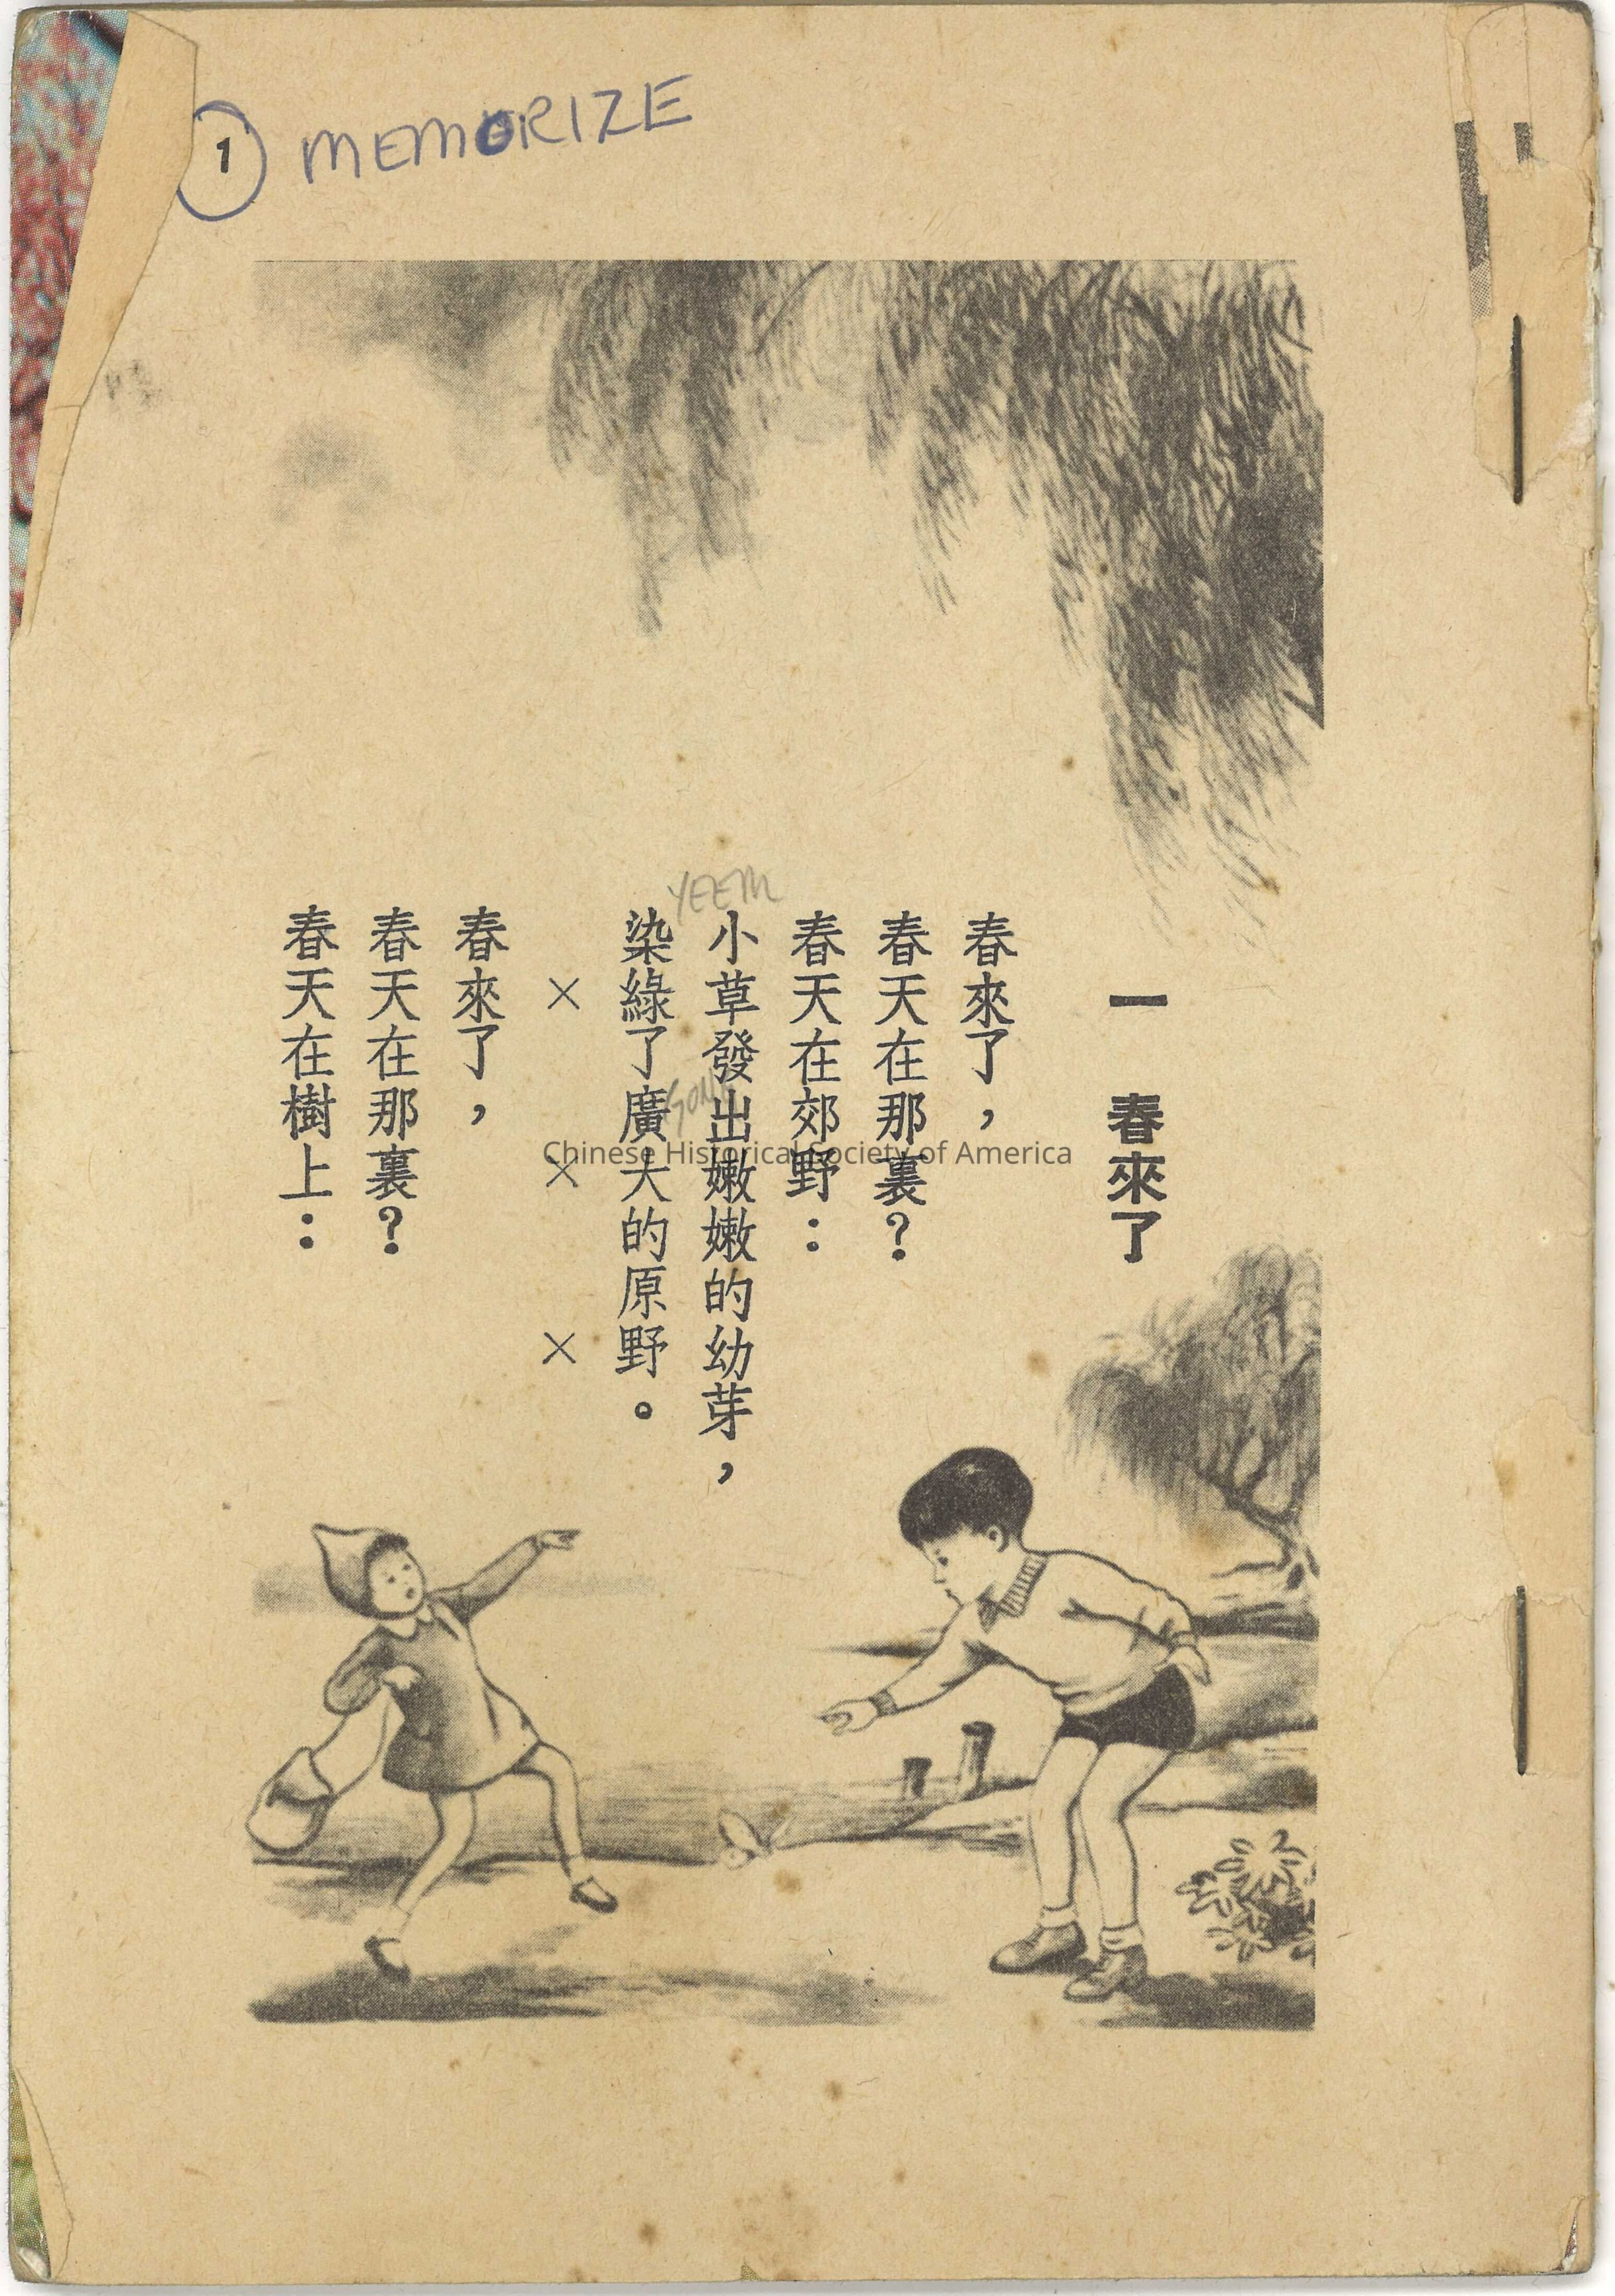 1 MEMORIZE
一 春來了
春來了，
春天在那裏？
春天在郊野：
小草發出嫩嫩的幼芽，
YEEM
染綠了廣大的原野。
× × ×
春來了，
春天在那裏？
春天在樹上：
Chinese Historical Society of America